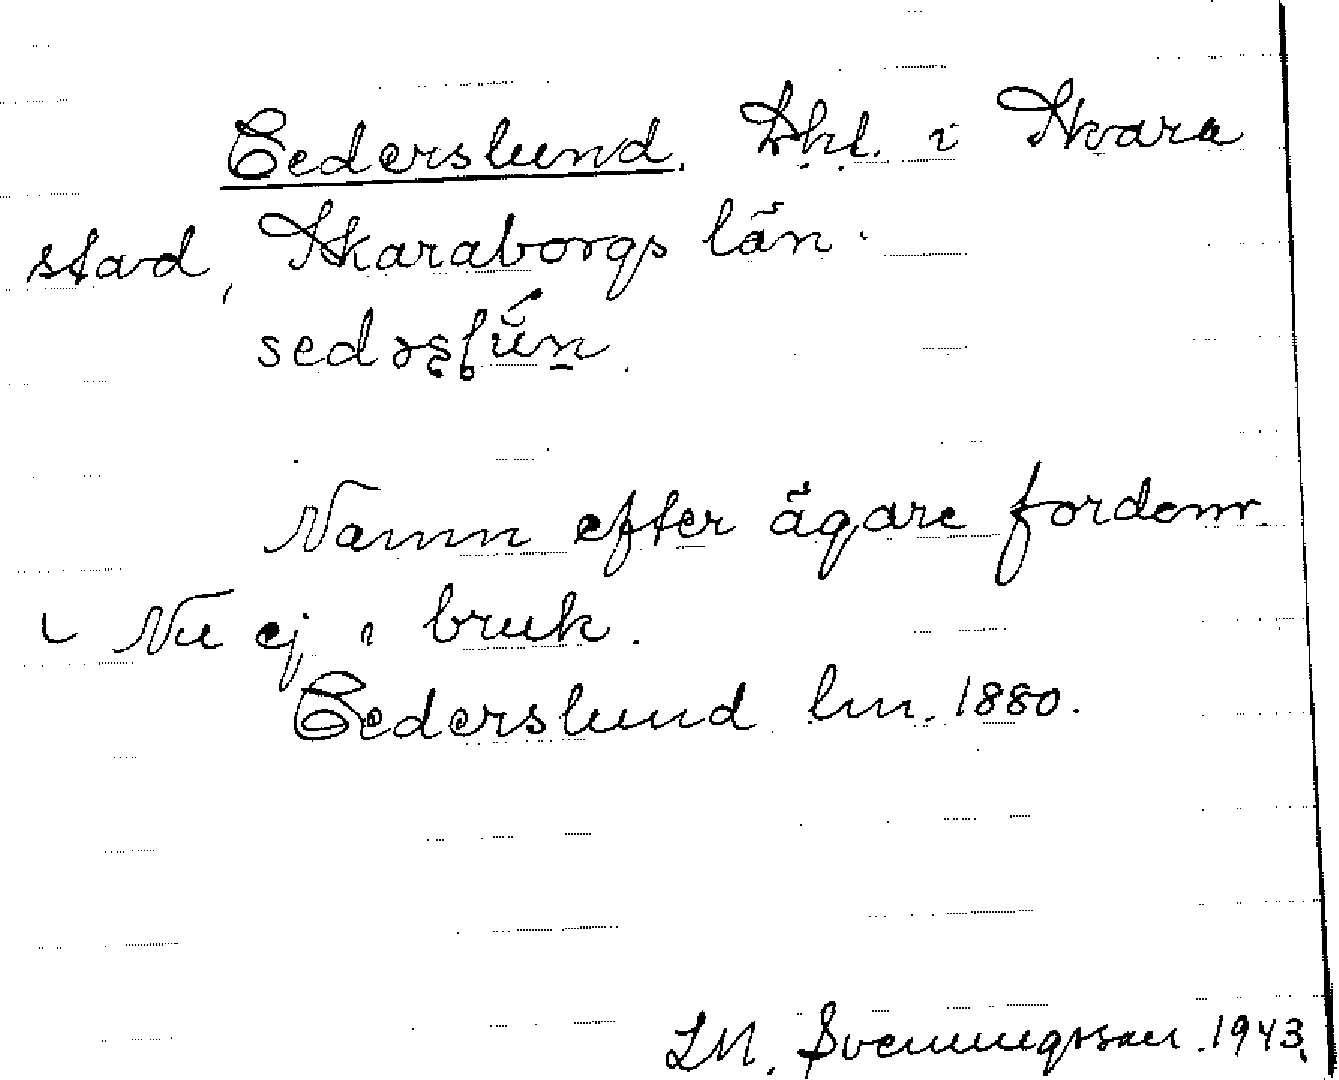 Cederslund. Lhl. i Skara
stad, Skaraborgs län.
sedəslún.
Namn efter ägare fordom.
Nu ej i bruk.
Cederslund lm. 1880.
LM. Svenningsson. 1943.